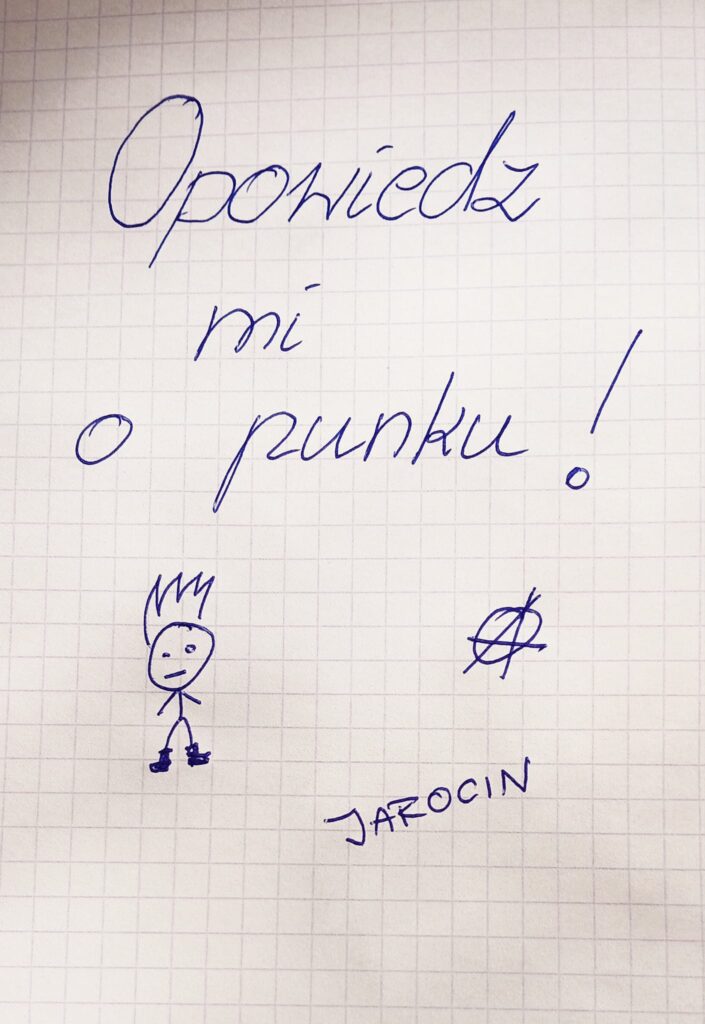 Opowiedz
mi
o punku!
JAROCIN